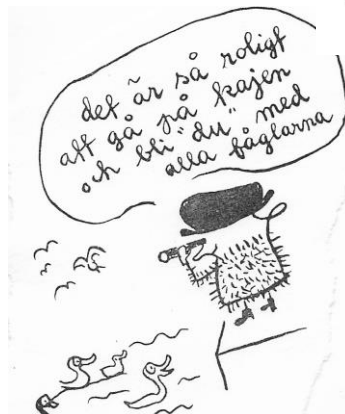 det är så roligt
att gå på kajen
och bli "du" med
alla fåglarna